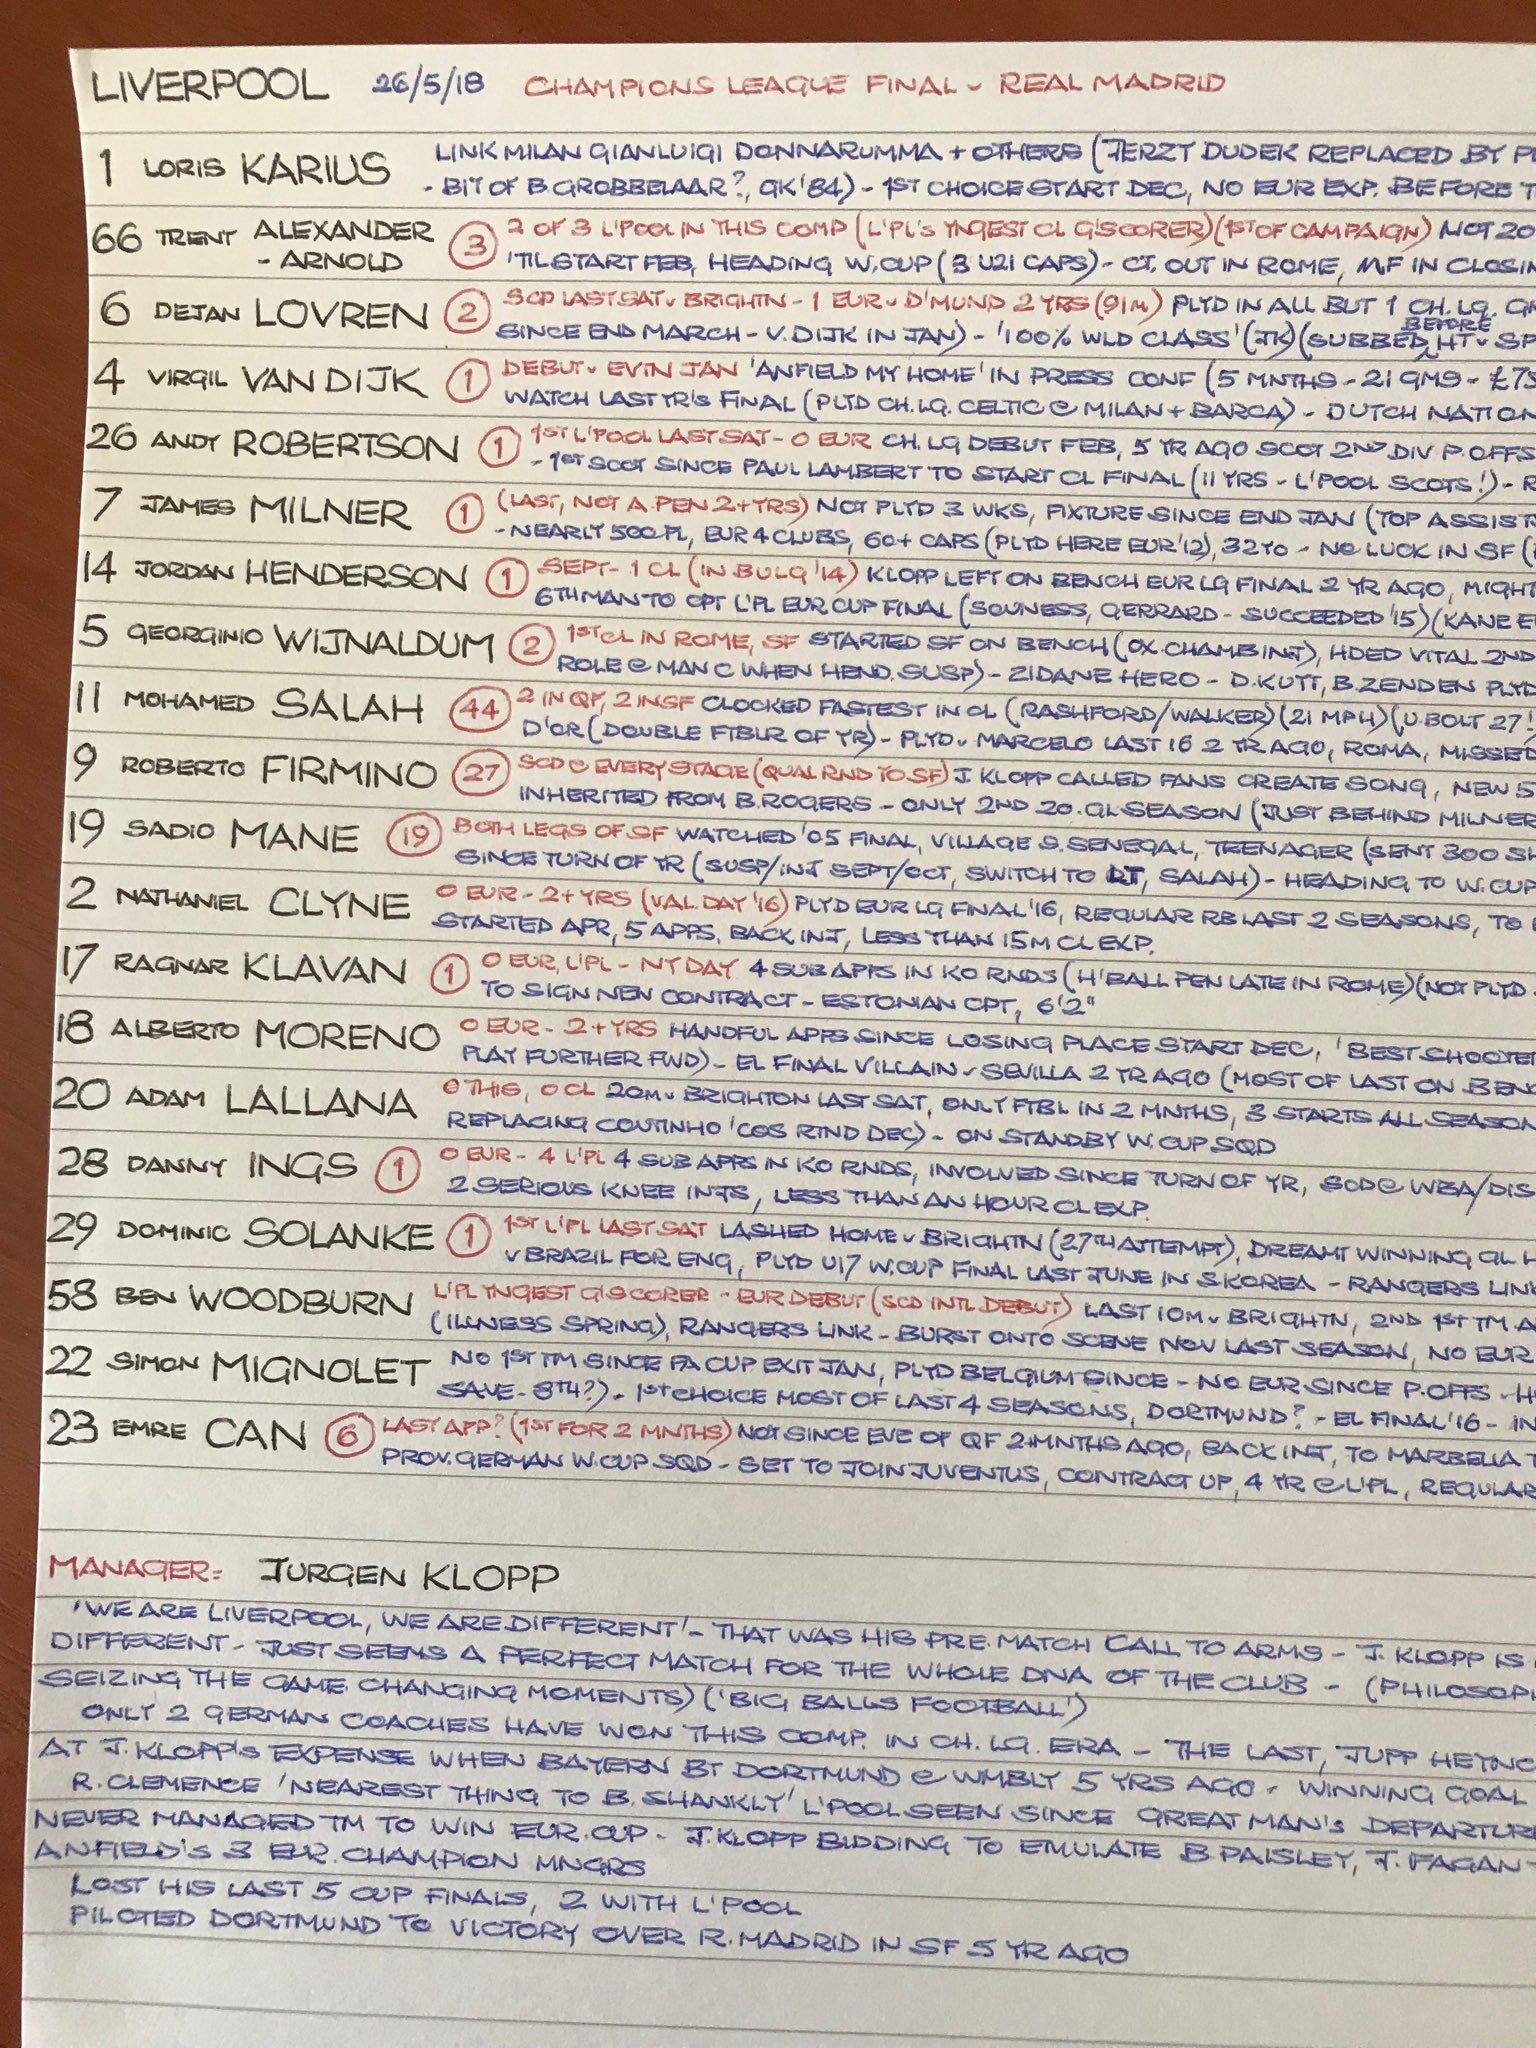 LIVERPOOL 26/5/18 CHAMPIONS LEAGUE FINAL v REAL MADRID
1 LORIS KARIUS LINK MILAN GIANLUIGI DONNARUMMA + OTHERS (JERZY DUDEK REPLACED BY
- BIT OF B.GROBBELAAR?, GK '84) - 1ST CHOICE START DEC, NO EUR EXP. BEFORE
66 TRENT ALEXANDER - ARNOLD 3 2 OF 3 L'POOL IN THIS COMP (L'PL'S YNGEST CL G'SCORER) (1ST OF CAMPAIGN) NOT 20
'TIL START FEB, HEADING W.CUP (3 U21 CAPS) - CT. OUT IN ROME, MF IN
6 DEJAN LOVREN 2 SCD LAST SAT v BRIGHTN - 1 EUR v D'MUND 2 YRS (91M) PLYD IN ALL BUT 1 CH. LG.
SINCE END MARCH - V. DIJK IN JAN) - '100% WLD CLASS' (JK) (SUBBED BEFORE HT v
4 VIRGIL VAN DIJK 1 DEBUT v EVTN JAN 'ANFIELD MY HOME' IN PRESS CONF (5 MNTHS - 21 GMS -
WATCH LAST YR'S FINAL (PLYD CH. LG. CELTIC @ MILAN + BARCA) - DUTCH
26 ANDY ROBERTSON 1 1ST L'POOL LAST SAT - 0 EUR CH. LG DEBUT FEB, 5 YR AGO SCOT 2ND DIV P.OFFS
- 1ST SCOT SINCE PAUL LAMBERT TO START CL FINAL (11 YRS - L'POOL SCOTS!) -
7 JAMES MILNER 1 (LAST, NOT A. PEN 2+YRS) NOT PLYD 3 WKS, FIXTURE SINCE END JAN (TOP
- NEARLY 500 PL, EUR 4 CLUBS, 60+ CAPS (PLYD HERE EUR '12), 32 YO - NO LUCK IN SF
14 JORDAN HENDERSON 1 SEPT - 1 CL (IN BULG '14) KLOPP LEFT ON BENCH EUR LG FINAL 2 YR AGO,
6TH MAN TO CPT L'PL EUR CUP FINAL (SOUNESS, GERRARD - SUCCEEDED '15) (KANE
5 GEORGINIO WIJNALDUM 2 1ST CL IN ROME, SF STARTED SF ON BENCH (OX. CHAMB INJ), HDED VITAL 2ND
ROLE @ MAN C WHEN HEND. SUSP) - ZIDANE HERO - D.KUYT, B.ZENDEN PLYD
11 MOHAMED SALAH 44 2 IN QF, 2 IN SF CLOCKED FASTEST IN CL (RASHFORD/WALKER) (21 MPH) (U.BOLT 27!
D'OR (DOUBLE FTBLR OF YR) - PLYD v MARCELO LAST 16 2 YR AGO, ROMA, MISSED
9 ROBERTO FIRMINO 27 SCD @ EVERY STAGE (QUAL RND TO SF) J. KLOPP CALLED FANS CREATE SONG, NEW 5
INHERITED FROM B.ROGERS - ONLY 2ND 20. GL SEASON (JUST BEHIND MILNER
19 SADIO MANE 19 BOTH LEGS OF SF WATCHED '05 FINAL, VILLAGE S.SENEGAL, TEENAGER (SENT 300
SINCE TURN OF YR (SUSP/INJ SEPT/OCT, SWITCH TO LT, SALAH) - HEADING TO W.CUP
2 NATHANIEL CLYNE 0 EUR - 2+ YRS (VAL. DAY '16) PLYD EUR LG FINAL '16, REGULAR RB LAST 2 SEASONS, TO
STARTED APR, 5 APPS. BACK INJ, LESS THAN 15M CL EXP.
17 RAGNAR KLAVAN 1 0 EUR, L'PL - NY DAY 4 SUB APPS IN KO RNDS (H'BALL PEN LATE IN ROME) (NOT PLYD
TO SIGN NEW CONTRACT - ESTONIAN CPT, 6'2"
18 ALBERTO MORENO 0 EUR - 2+ YRS HANDFUL APPS SINCE LOSING PLACE START DEC, 'BEST
PLAY FURTHER FWD) - EL FINAL VILLAIN v SEVILLA 2 YR AGO (MOST OF LAST ON
20 ADAM LALLANA 0 THIS, 0 CL 20M v BRIGHTON LAST SAT, ONLY FTBL IN 2 MNTHS, 3 STARTS ALL SEASON
REPLACING COUTINHO 'COS RTND DEC) - ON STANDBY W.CUP SQD
28 DANNY INGS 1 0 EUR - 4 L'PL 4 SUB APPS IN KO RNDS, INVOLVED SINCE TURN OF YR, SCD @ WBA/
2 SERIOUS KNEE INJS, LESS THAN AN HOUR CL EXP.
29 DOMINIC SOLANKE 1 1ST L'PL LAST SAT LASHED HOME v BRIGHTN (27TH ATTEMPT), DREAMT WINNING GL
v BRAZIL FOR ENG, PLYD U17 W.CUP FINAL LAST JUNE IN S.KOREA - RANGERS LINK
58 BEN WOODBURN L'PL YNGEST G'SCORER - EUR DEBUT (SCD INTL DEBUT) LAST 10M v BRIGHTN, 2ND 1ST TM
(ILLNESS SPRING), RANGERS LINK - BURST ONTO SCENE NOV LAST SEASON, NO EUR
22 SIMON MIGNOLET NO 1ST TM SINCE FA CUP EXIT JAN, PLYD BELGIUM SINCE - NO EUR SINCE P.OFFS -
SAVE - 8TH?) - 1ST CHOICE MOST OF LAST 4 SEASONS, DORTMUND? - EL FINAL '16 -
23 EMRE CAN 6 LAST APP? (1ST FOR 2 MNTHS) NOT SINCE EVE OF QF 2+MNTHS AGO, BACK INJ, TO MARBELLA
PROV. GERMAN W.CUP SQD - SET TO JOIN JUVENTUS, CONTRACT UP, 4 YR @ L'PL, REGULAR
MANAGER= JURGEN KLOPP
'WE ARE LIVERPOOL, WE ARE DIFFERENT' - THAT WAS HIS PRE. MATCH CALL TO ARMS - J. KLOPP IS
DIFFERENT - JUST SEEMS A PERFECT MATCH FOR THE WHOLE DNA OF THE CLUB -
SEIZING THE GAME. CHANGING MOMENTS) ('BIG BALLS FOOTBALL')
ONLY 2 GERMAN COACHES HAVE WON THIS COMP. IN CH. LG. ERA - THE LAST, JUPP
AT J. KLOPP'S EXPENSE WHEN BAYERN BT DORTMUND @ WMBLY 5 YRS AGO - WINNING GOAL
R. CLEMENCE 'NEAREST THING TO B. SHANKLY' L'POOL SEEN SINCE GREAT MAN'S DEPARTURE
NEVER MANAGED TM TO WIN EUR. CUP - J.KLOPP BIDDING TO EMULATE B.PAISLEY, J. FAGAN
ANFIELD'S 3 EUR. CHAMPION MNGRS
LOST HIS LAST 5 CUP FINALS, 2 WITH L'POOL
PILOTED DORTMUND TO VICTORY OVER R. MADRID IN SF 5 YR AGO